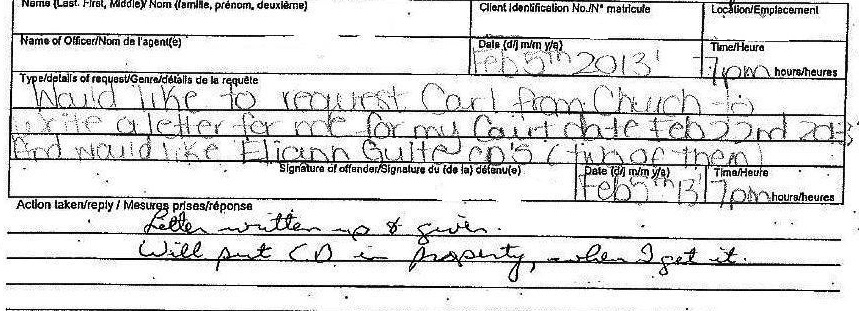 Name (Last, First, Middle)/ Nom (famille, prénom, deuxième)
Client Identification No./N° matricule
Location/Emplacement
Name of Officer/Nom de l'agent(e)
Date (d/j m/m y/a)
Time/Heure
Feb 5th 2013
7pm hours/heures
Type/details of request/Genre/détails de la requête
Would like to request Carl from Church to
write a letter for me for my Court date Feb 22nd 2013
And would like CD'S (two of them)
Signature of offender/Signature du (de la) détenu(e)
Date (d/j m/m y/a)
Time/Heure
Feb 5th 13
7pm hours/heures
Action taken/reply / Mesures prises/réponse
Letter written up & given.
Will put CD in property, when I get it.